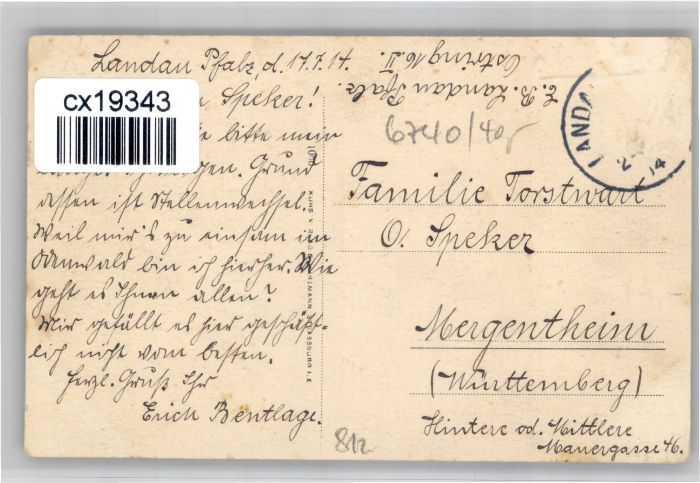 Landau Pfalz, d. 17.7.14.
cx19343
Speker!
bitte mein
Grund
dessen ist Stellenwechsel.
Weil mir's zu einsam im
Odenwald bin ich hierher. Wie
geht es Ihnen allen?
Mir gefällt es hier geschäft-
lich nicht vom besten.
Herzl. Gruß Ihr
Erich Bentlage.
E. B. Landau Pfalz
Ostring 16. II.
6740/40
LANDA
14
Familie Forstwart
O. Speker
Mergentheim
(Württemberg)
Hintere od. Mittlere
Mauergasse 46.
812